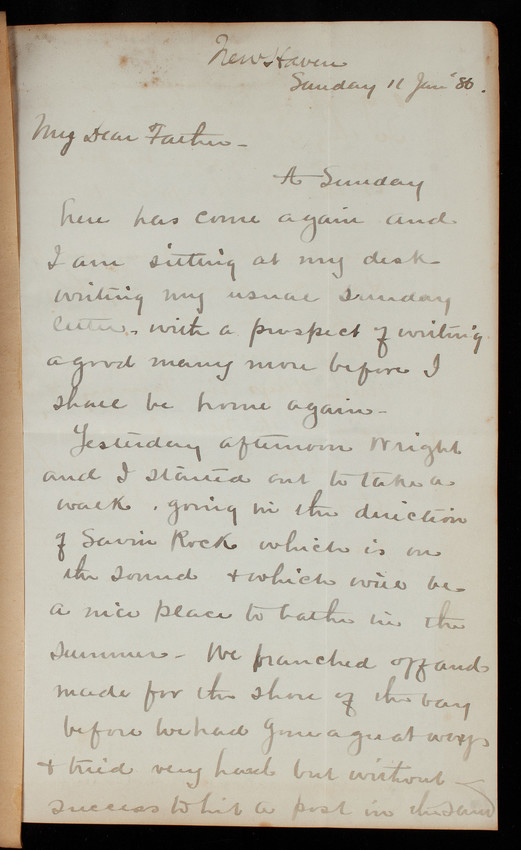 New Haven
Sunday 11 Jan' 86.
My Dear Father -
A Sunday
here has come again and
I am sitting at my desk
writing my usual Sunday
letter, with a prospect of writing
a good many more before I
shall be home again -
Yesterday afternoon Wright
and I started out to take a
walk, going in the direction
of Savin Rock which is on
the sound + which will be
a nice place to bathe in the
summer - We branched off and
made for the shore of the bay
before we had gone a great way
+ tried very hard but without
success to hit a post in the sand